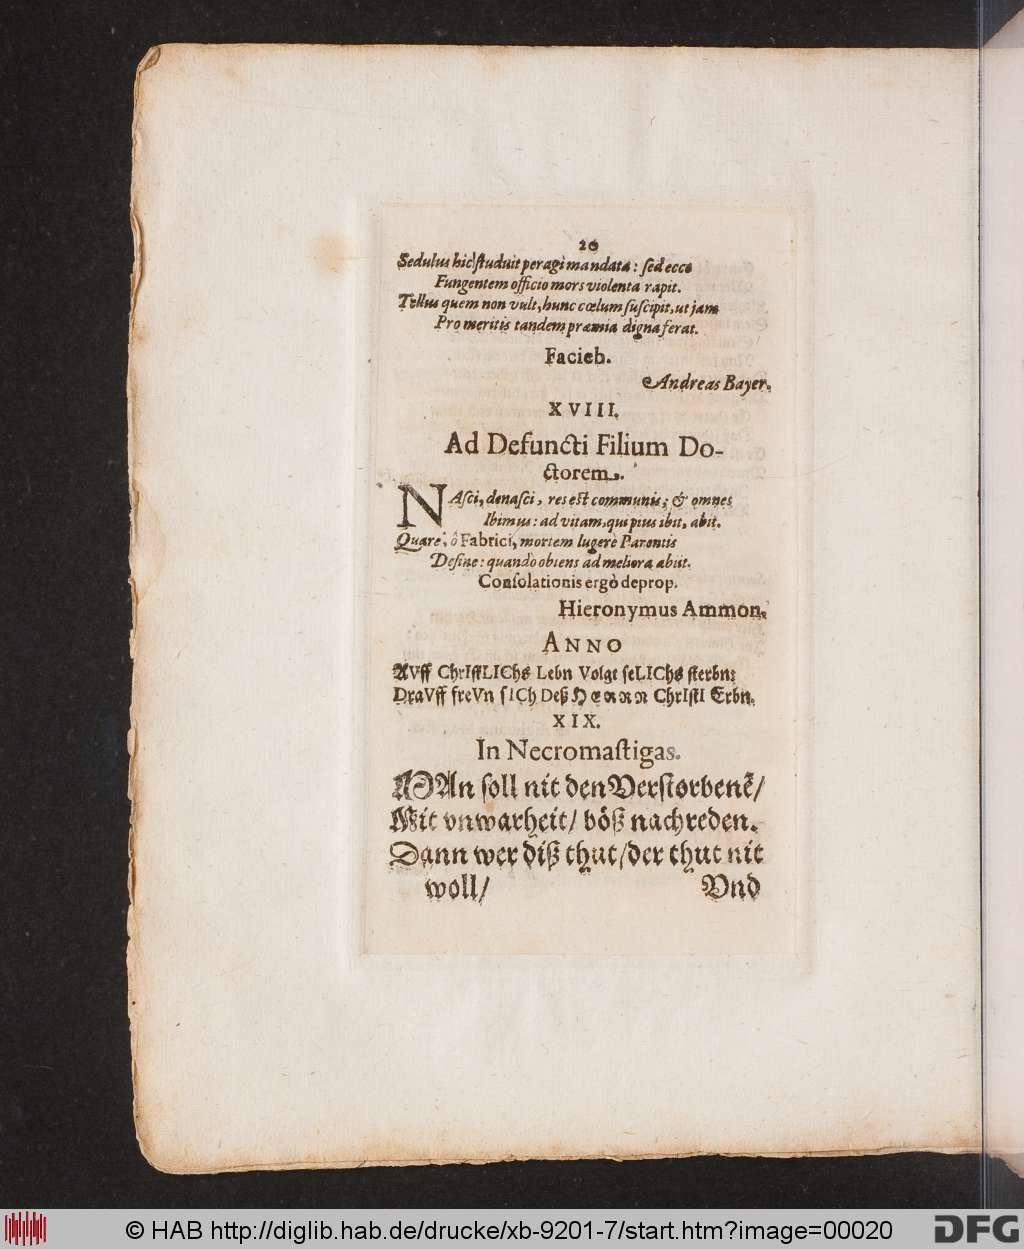 20
Sedulus hic ſtuduit peragi mandata: ſed ecce
Fungentem officio mors violenta rapit.
Tellus quem non vult, hunc cœlum ſuſcipit, ut jam
Pro meritis tandem præmia digna ferat.
Facieb.
Andreas Bayer.
XVIII.
Ad Defuncti Filium Do-
ctorem.
NAſci, denaſci, res eſt communis; & omnes
Ibimus: ad vitam, qui pius ibit, abit.
Quare, ô Fabrici, mortem lugere Parentis
Deſine: quandò obiens ad meliora abiit.
Conſolationis ergò deprop.
Hieronymus Ammon.
ANNO
AVff ChrIſtLIChs Lebn Volgt ſeLIChs ſterbn:
DraVff freVn ſICh Deß HERRN ChrIſtI Erbn.
XIX.
In Necromaſtigas.
MAn ſoll nit den Verſtorbenẽ/
Mit vnwarheit/ böß nachreden.
Dann wer diß thut/der thut nit
woll/ Vnd
© HAB http://diglib.hab.de/drucke/xb-9201-7/start.htm?image=00020 DFG